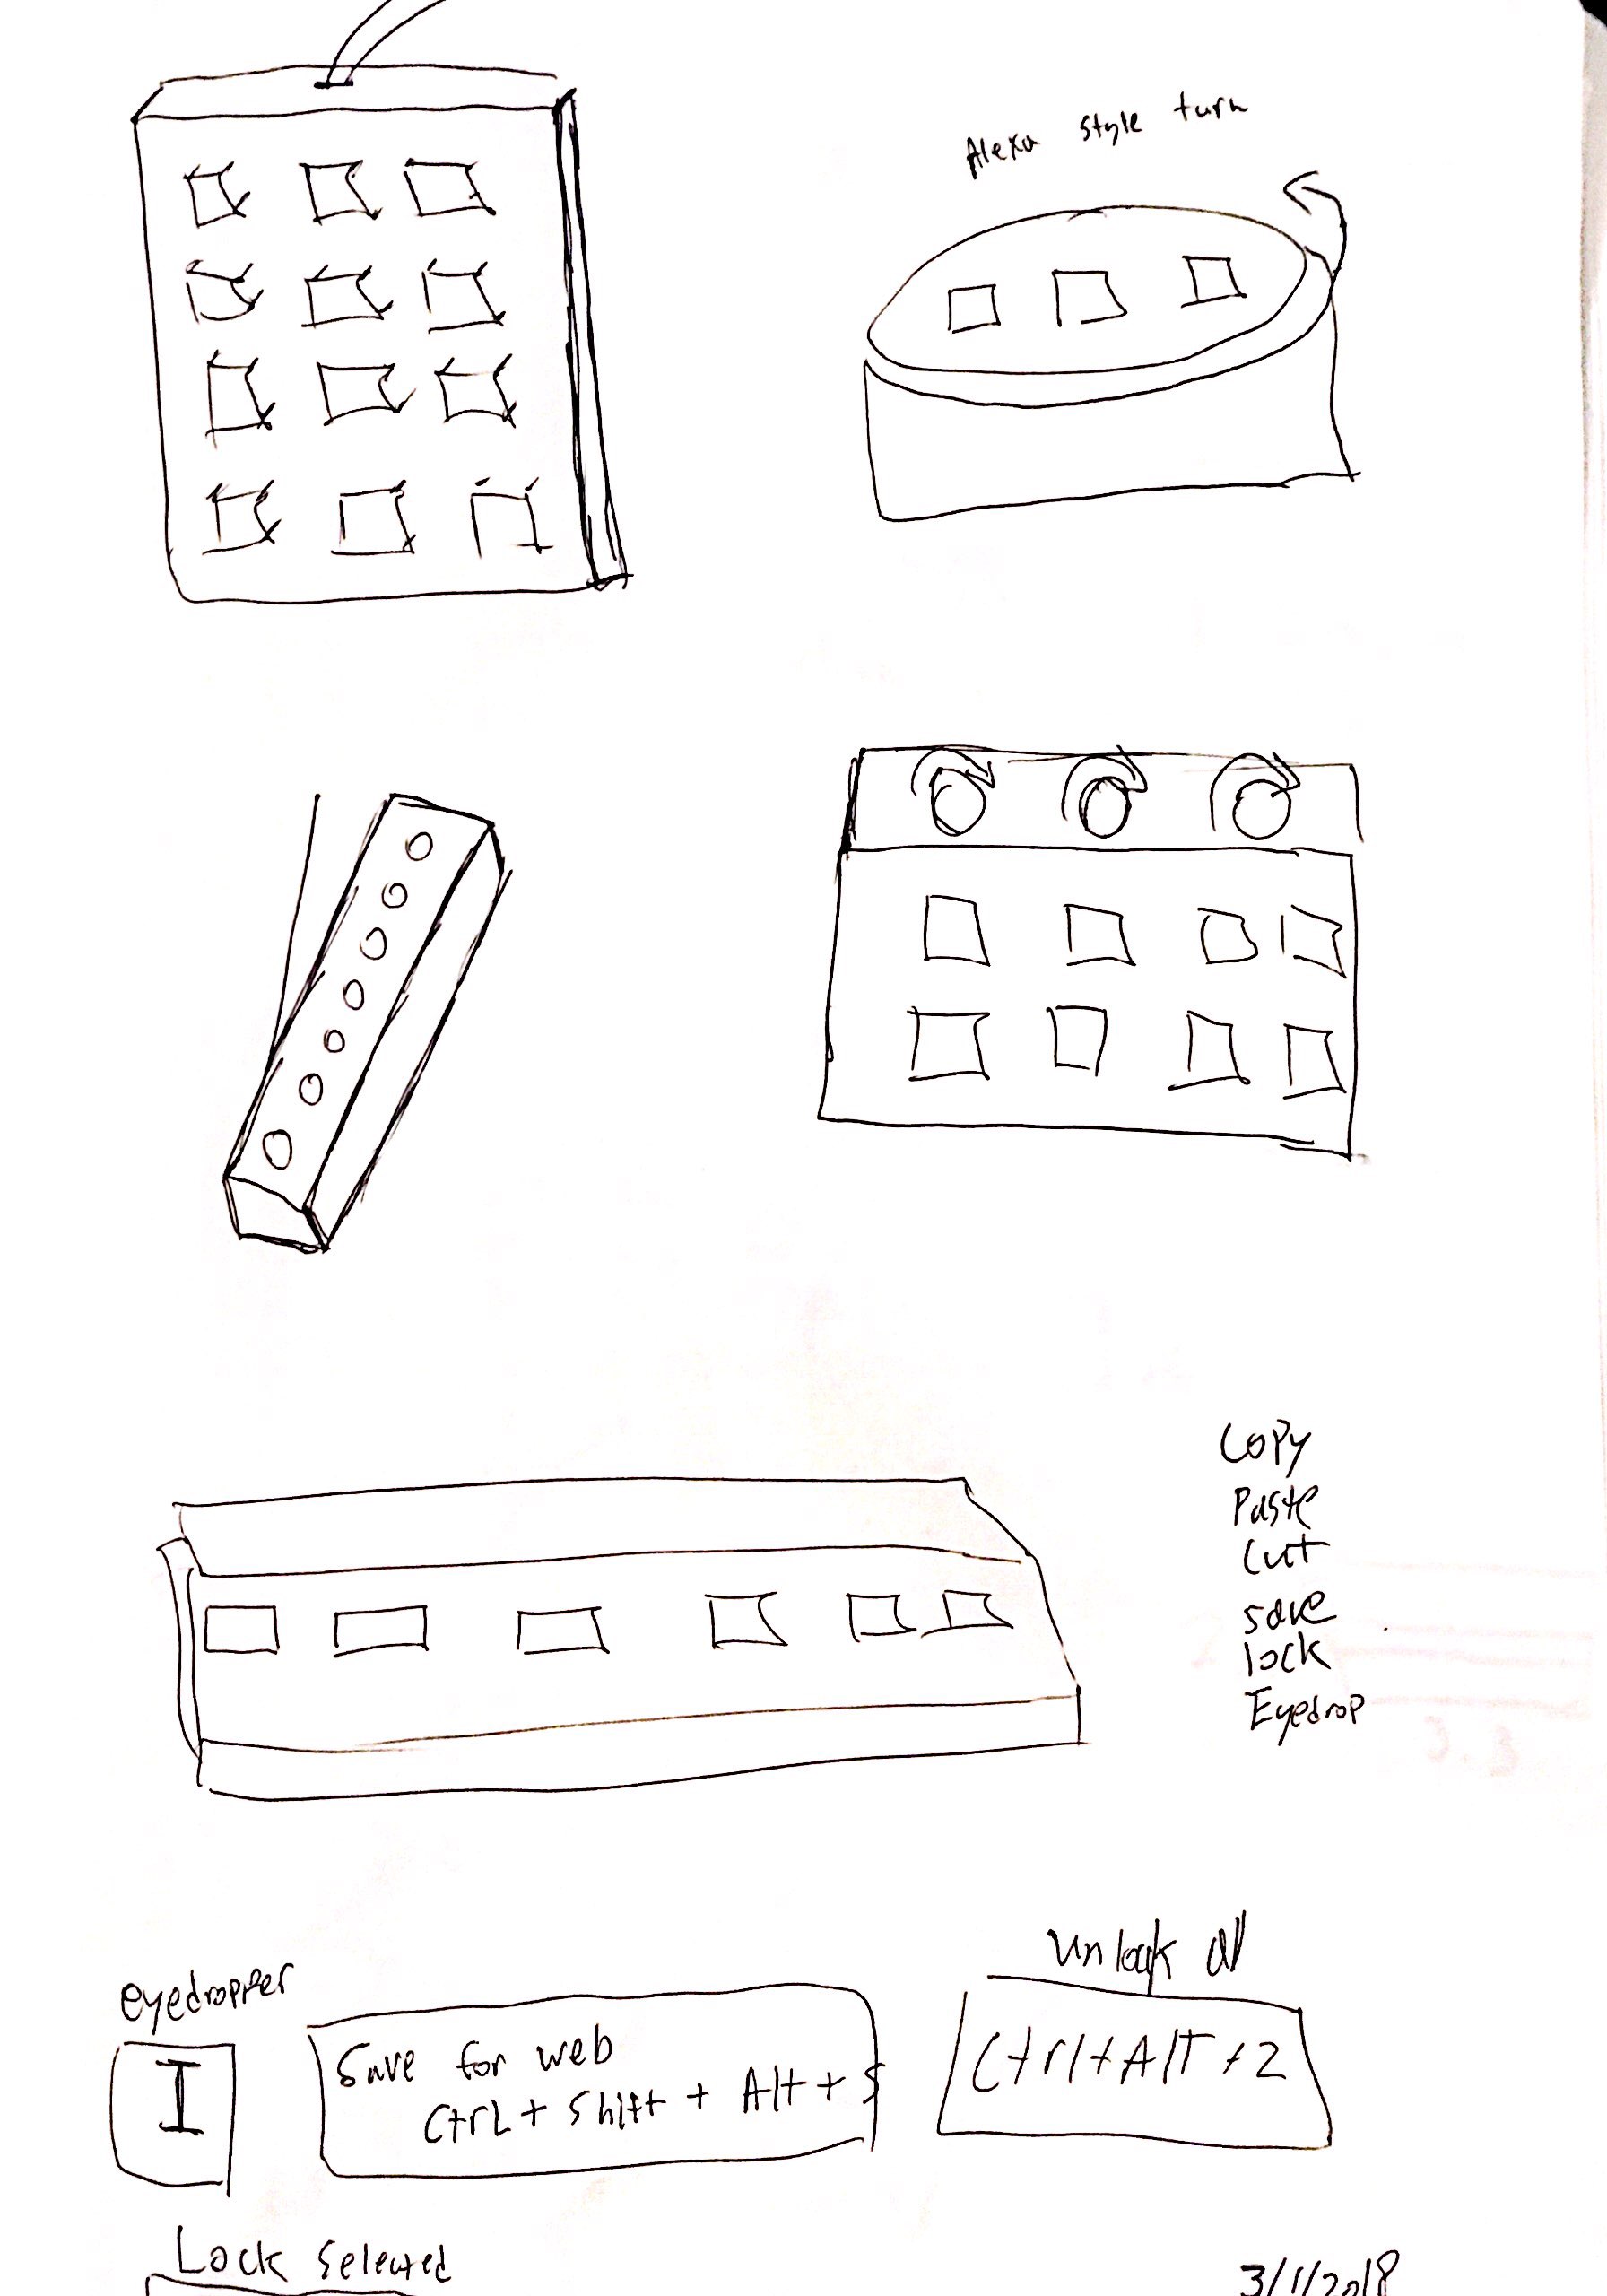 Alexa style turn
Copy
Paste
Cut
save
lock
Eyedrop
eyedropper
I
Save for web
Ctrl + Shift + Alt + S
Unlock all
Ctrl + Alt + 2
Lock Selected
3/1/2018